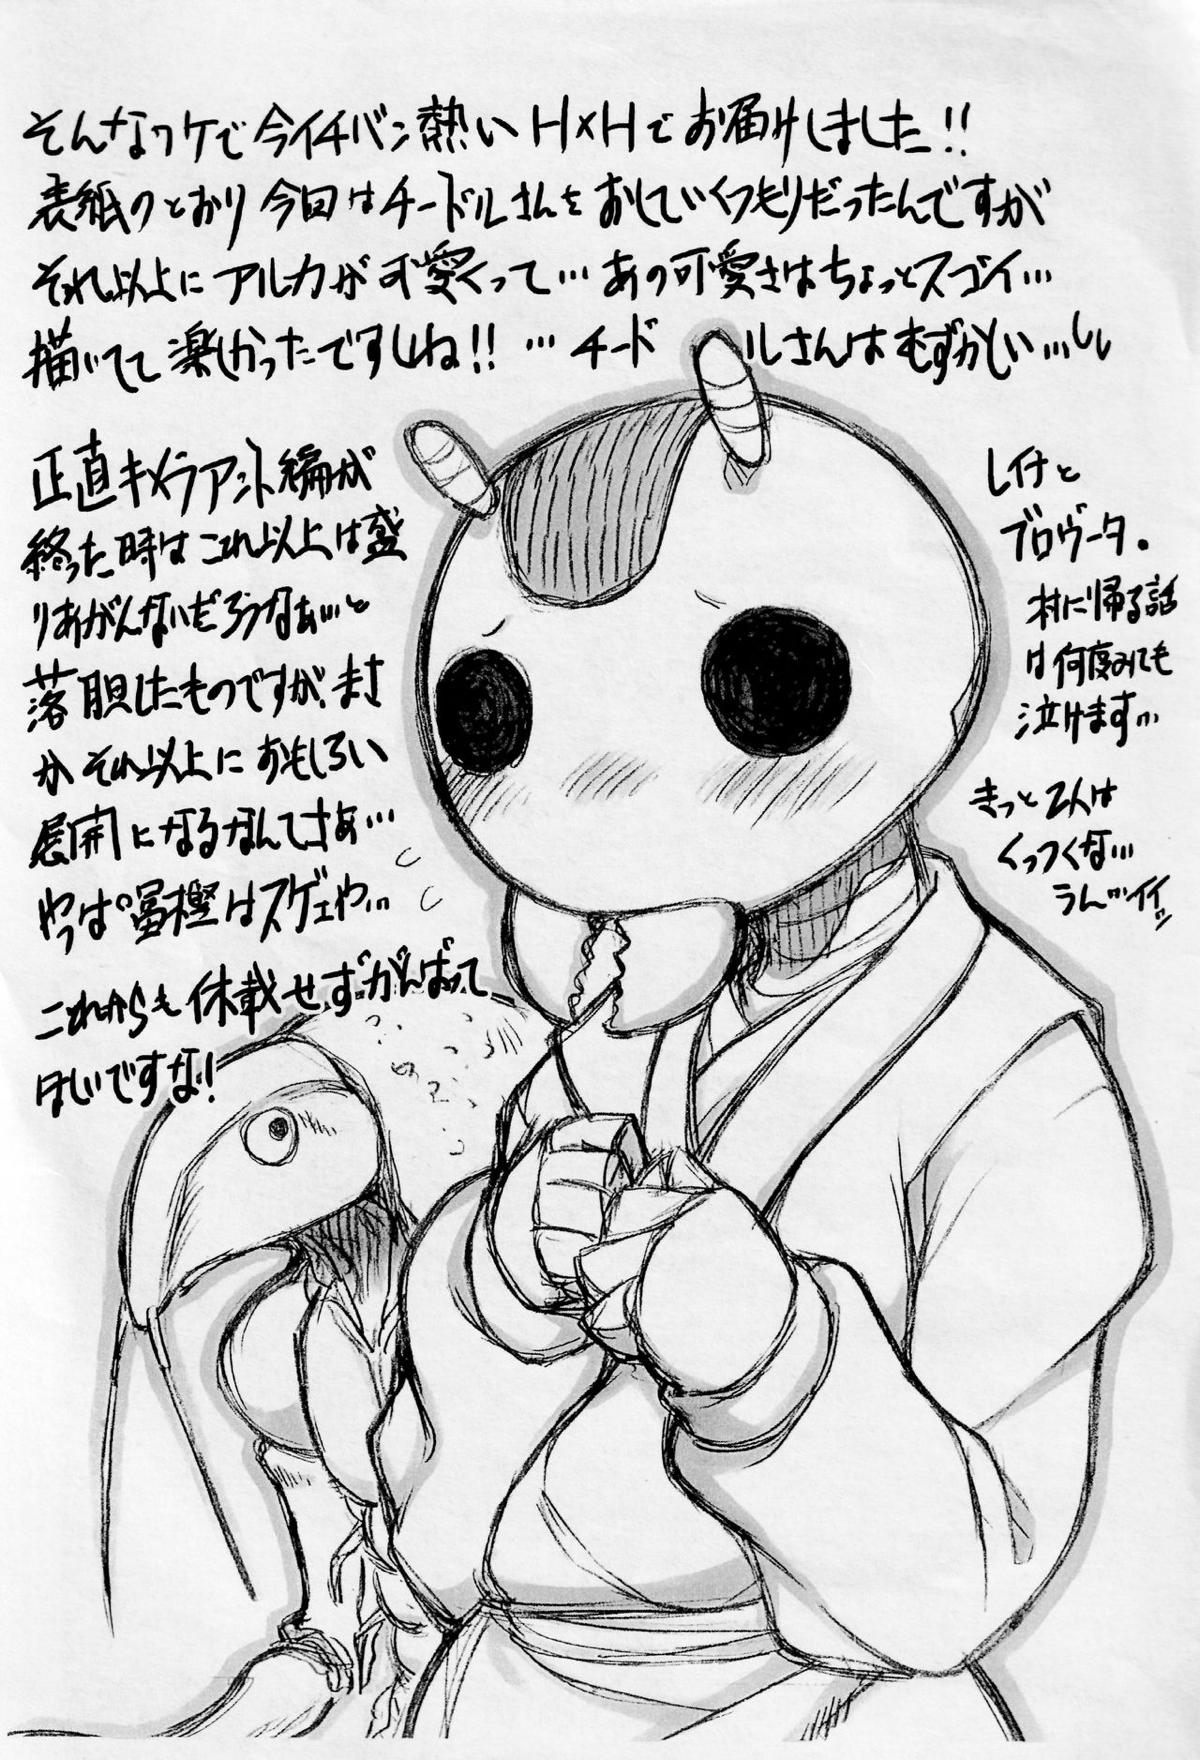 そんなワケで今イチバン熱いH×Hでお届けしました!!
表紙のとおり今回はチードルさんをおしていくつもりだったんですが
それ以上にアルカが可愛くって…あの可愛さはちょっとスゴイ…
描いてて楽しかったですしね!!…チードルさんはむずかしい…
正直キメラアント編が
終った時はこれ以上は盛
りあがんないだろうなぁ…と
落胆したものですが、まさ
かそれ以上におもしろい
展開になるなんてさぁ…
やっぱ冨樫はスゲェや…
これからも休載せずがんばって
ほしいですな!
レイナと
ブロヴーダ。
村に帰る話
は何度みても
泣けます…
きっと2人は
くっつくな…
うん…イイ